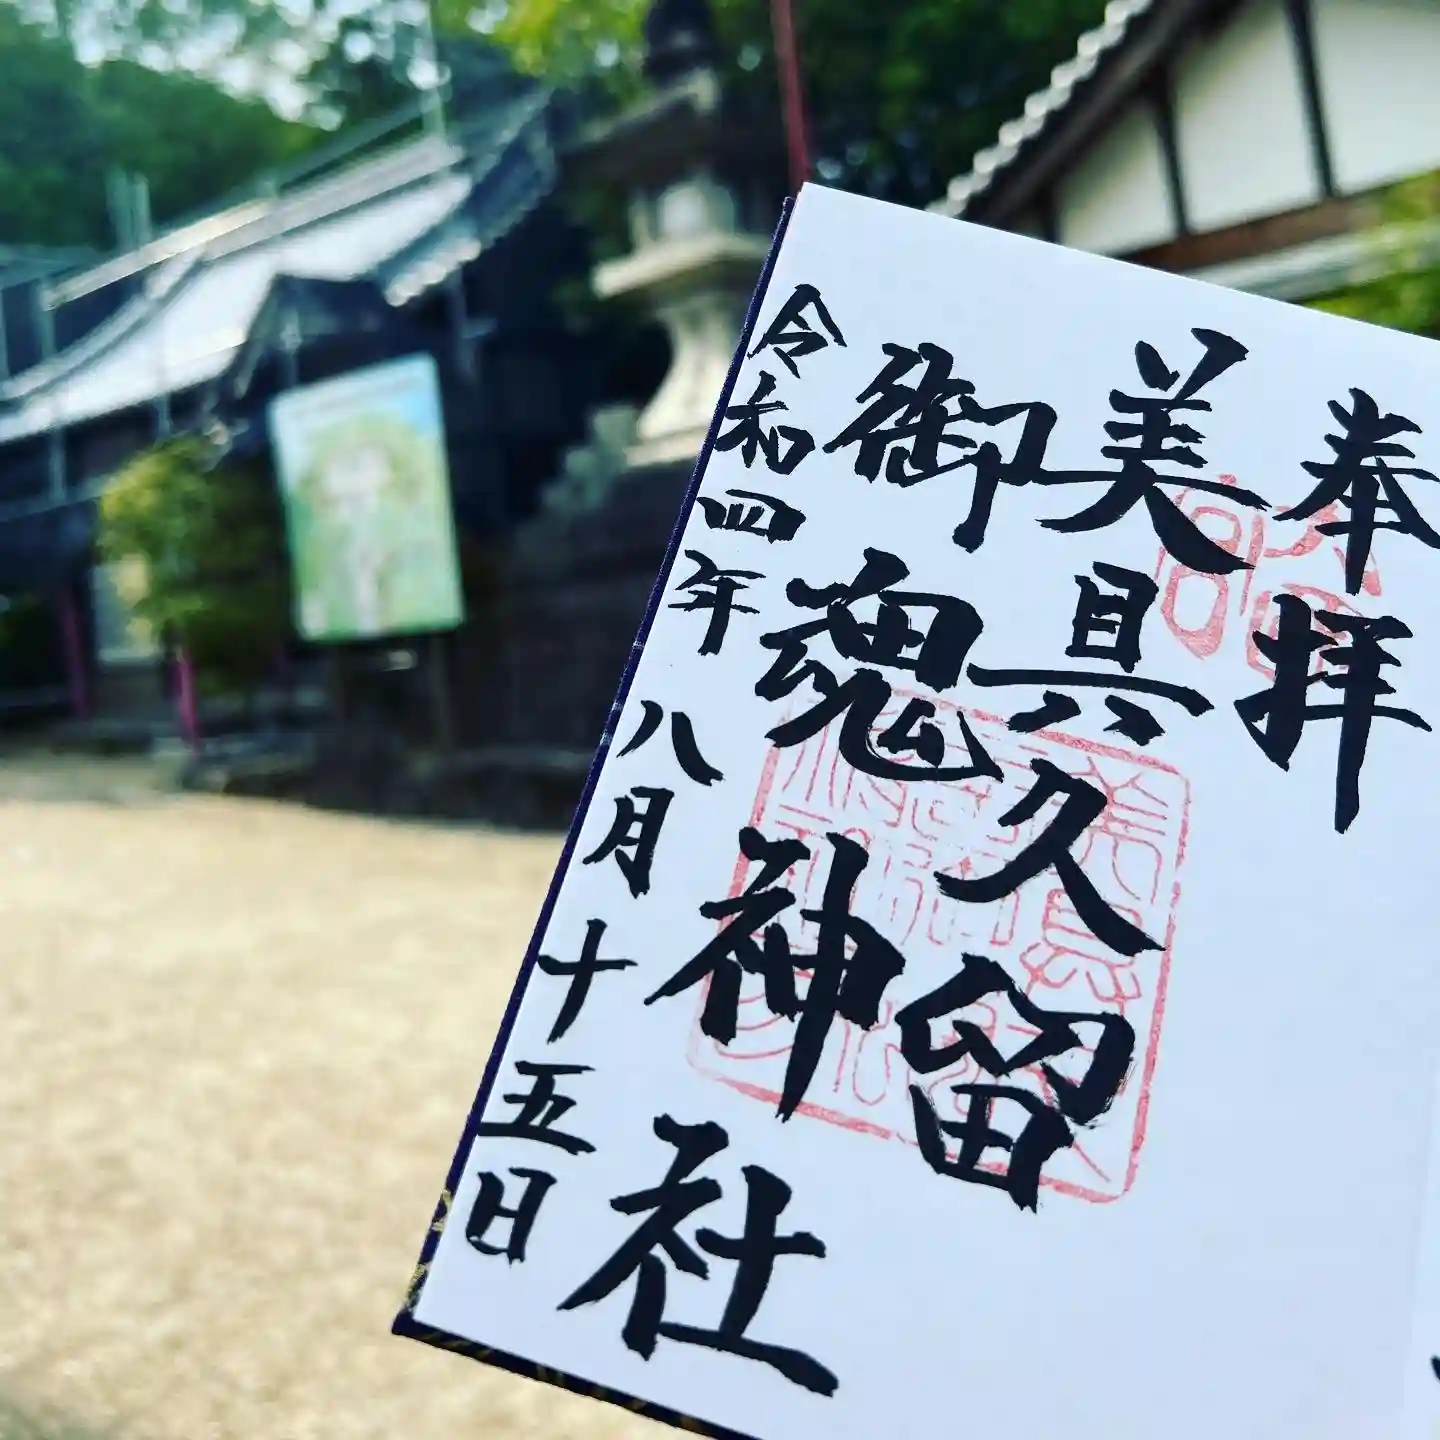 奉拝
美具久留
御魂神社
令和四年八月十五日